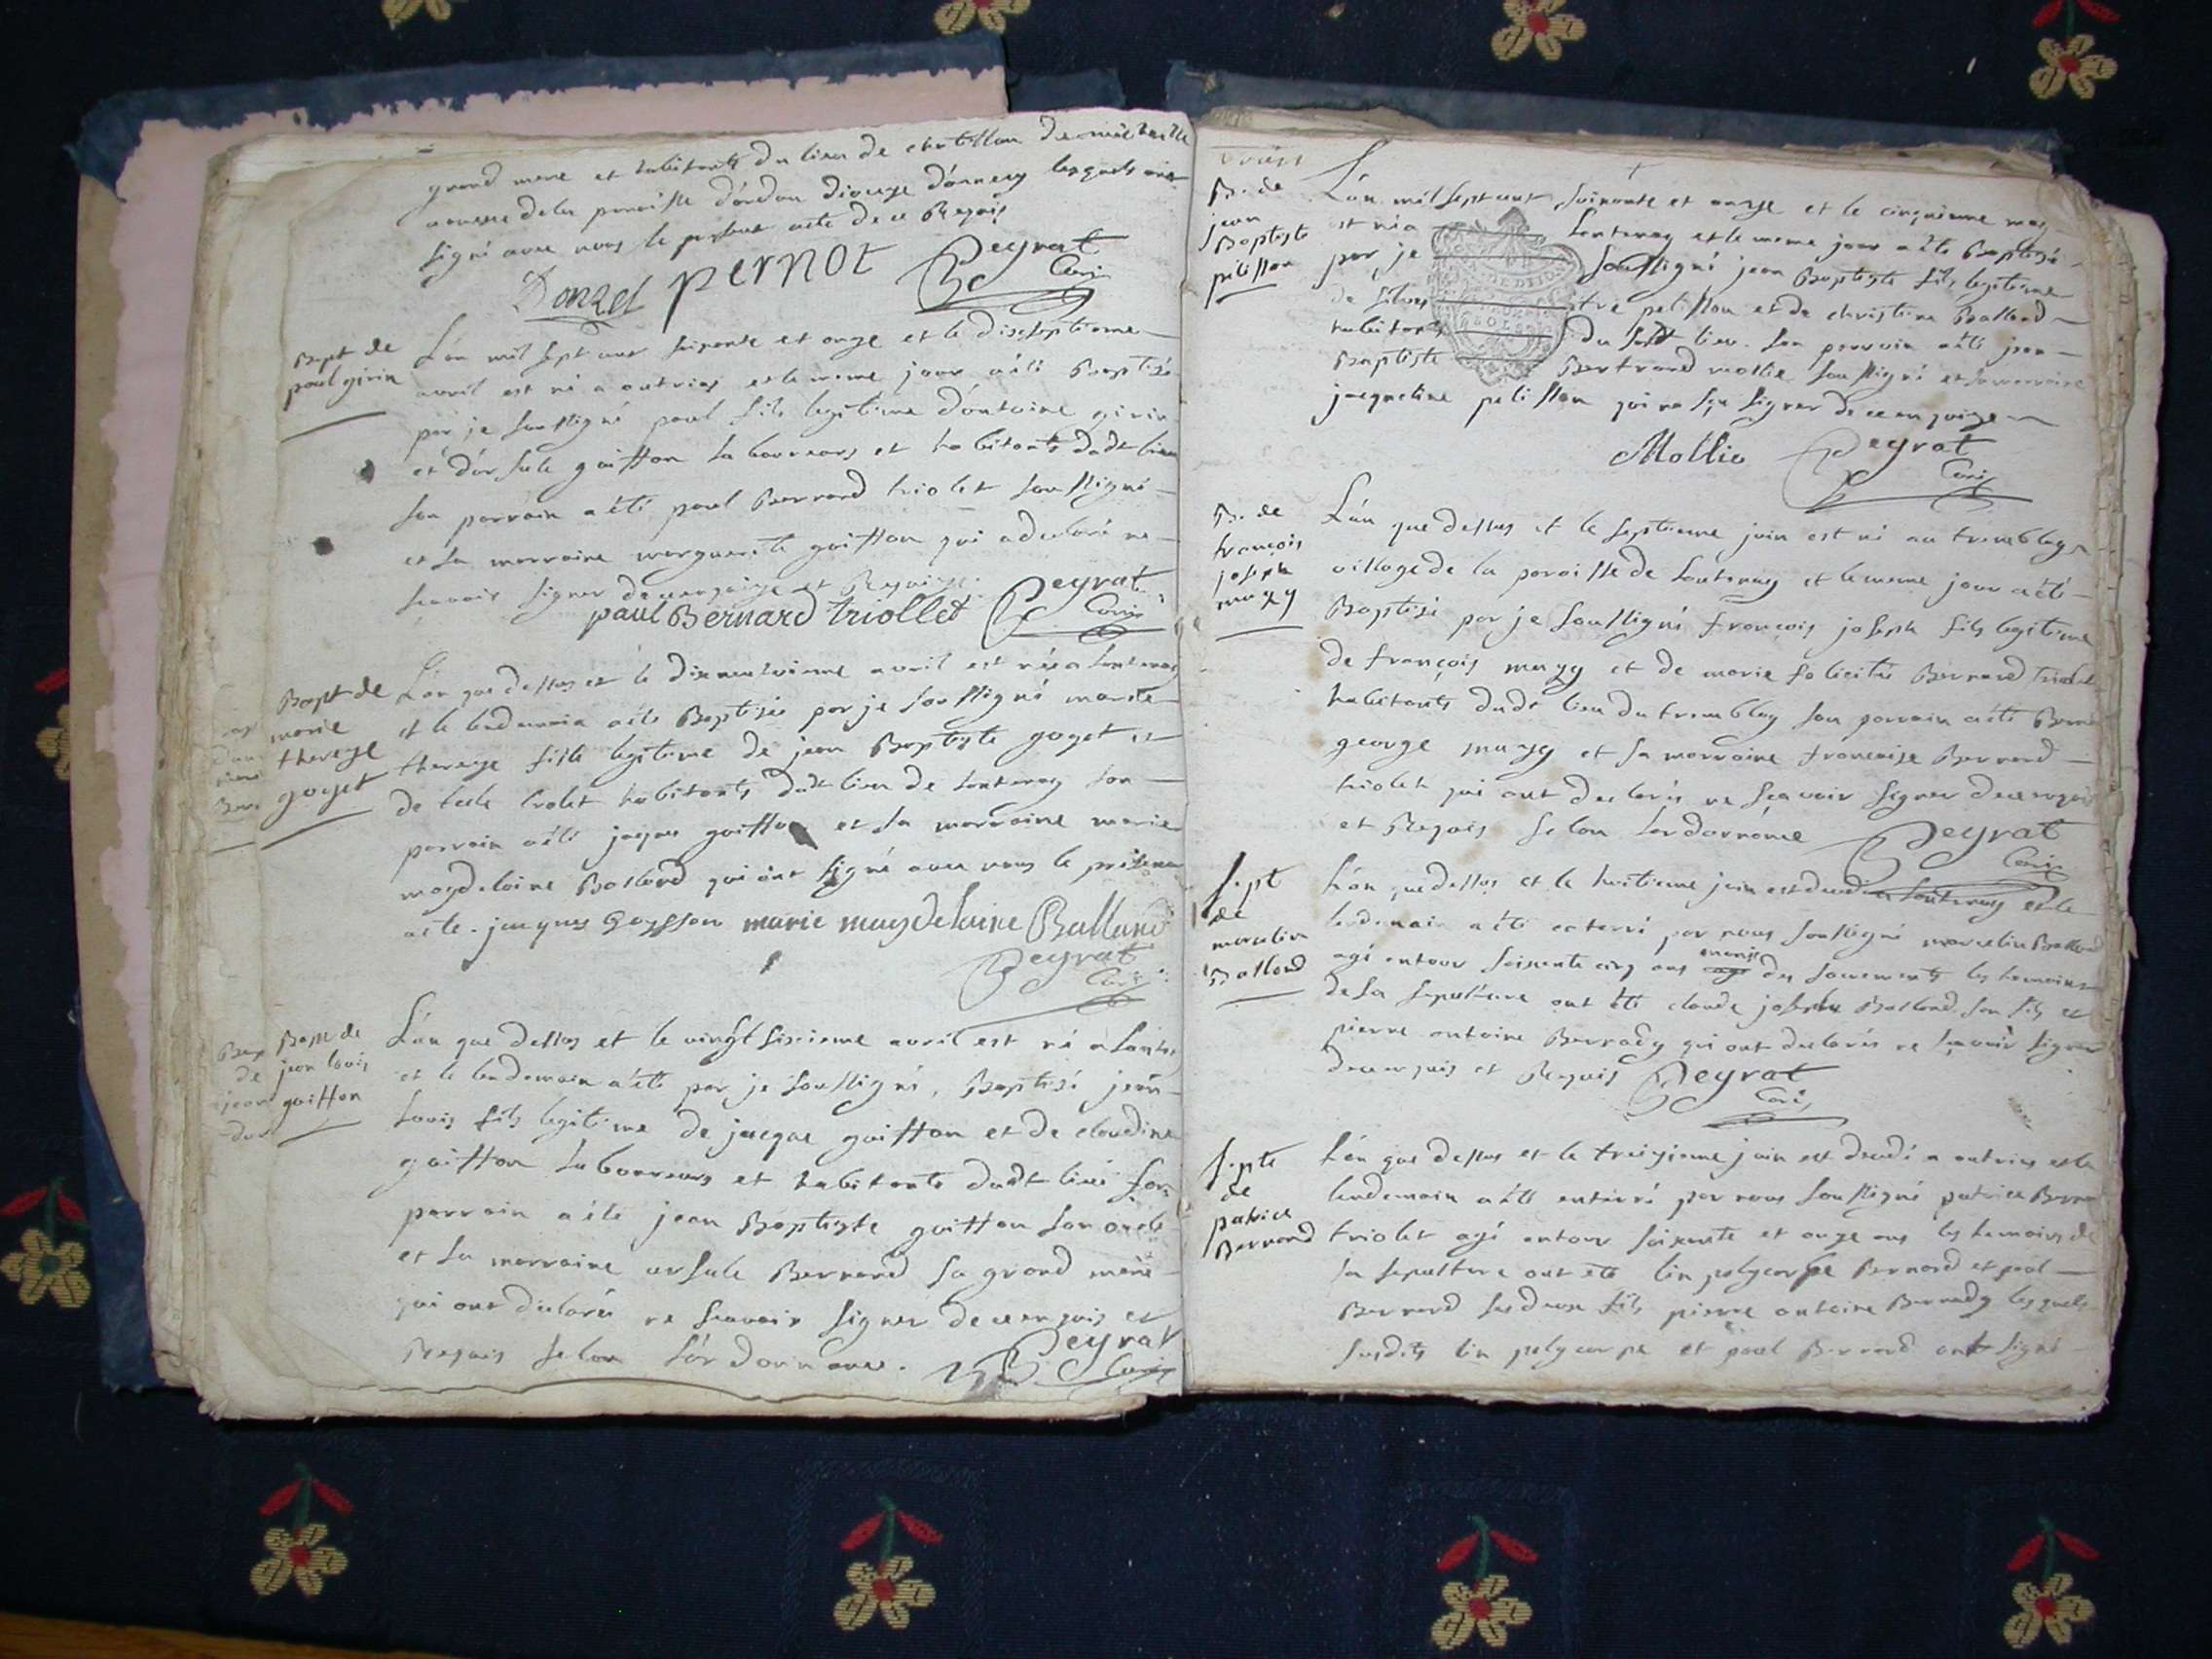 grand mere et habitants du lieu de chatillon de michaille
annexe de la paroisse d'ardon diocese d'annecy lesquels ont
signé avec nous le present acte de ce Requis
Donzel pernot Peyrat
Curé
Bapt de
paul girin
L'an mil sept cent soixante et onze et le dixseptieme
avril est né a outriaz et le meme jour a été Baptisé
par je soussigné paul fils legitime d'antoine girin
et d'ursule goiffon laboureurs et habitants dudt lieu
son parrain a été paul Bernard triolet soussigné
et sa marraine marguerite goiffon qui a declaré ne
scavoir signer de ce enquise et Requise.
paul Bernard triollet Peyrat
Curé
Bapt de
marie
thereze
goyet
L'an que dessus et le dixneuvieme avril est née a lantenay
et le lendemain a été Baptisée par je soussigné marie
thereze fille legitime de jean Baptiste goyet et
de habitants dudt lieu de lantenay son
parrain a été jaque goiffon et sa marraine marie
magdelaine Balland qui ont signé avec nous le present
acte. jacques Goyffon marie magdelaine Balland
Peyrat
Curé
Bapt de
jean louis
goiffon
L'an que dessus et le vingt sixieme avril est né a lantenay
et le lendemain a été par je soussigné, Baptisé jean
louis fils legitime de jacque goiffon et de claudine
goiffon laboureurs et habitants dudt lieu son
parrain a été jean Baptiste goiffon son oncle
et sa marraine ursule Bernard sa grand mere
qui ont declarés ne scavoir signer de ce enquis et
Requis selon l'ordonnance. Peyrat
Curé
B. de
jean
Baptiste
pelisson
L'an mil sept cent soixante et onze et le cinquieme may
est né a lantenay et le meme jour a été Baptisé
par je soussigné jean Baptiste fils legitime
de pelisson et de christine Balland
habitants du sudt lieu. son parrain a été jean
Baptiste Bertrand mollie soussigné et sa marraine
jacqueline pelisson qui na sçu signer de ce enquise
Mollie Peyrat
Curé
B. de
françois
joseph
mazy
L'an que dessus et le septieme juin est né au tremblay
village de la paroisse de lantenay et le meme jour a été
Baptisé par je soussigné françois joseph fils legitime
de françois mazy et de marie felicité Bernard triolet
habitants dudt lieu du tremblay son parrain a été
george mazy et sa marraine françoise Bernard
triolet qui ont declarés ne sçavoir signer de ce enquis
et Requis selon lordonnance Peyrat
Curé
sept
de
marcelin
Balland
L'an que dessus et le huitieme juin est decedé a lantenay et le
lendemain a été enterré par nous soussigné marcelin Balland
agé entour soixante cinq ans munis des sacrements les temoins
de sa sepulture ont été claude joseph Balland son fils et
pierre antoine Bernady qui ont declarés ne sçavoir signer
de ce enquis et Requis Peyrat
Curé
septe
de
patrice
Bernard
L'an que dessus et le treizieme juin est decedé a outriaz et le
lendemain a été enterré par nous soussigné patrice Bernard
triolet agé entour soixante et onze ans les temoins de
sa sepulture ont été lin polycarpe Bernard et paul
Bernard ses deux fils pierre antoine Bernady lesquels
susdits lin polycarpe et paul Bernard ont signé